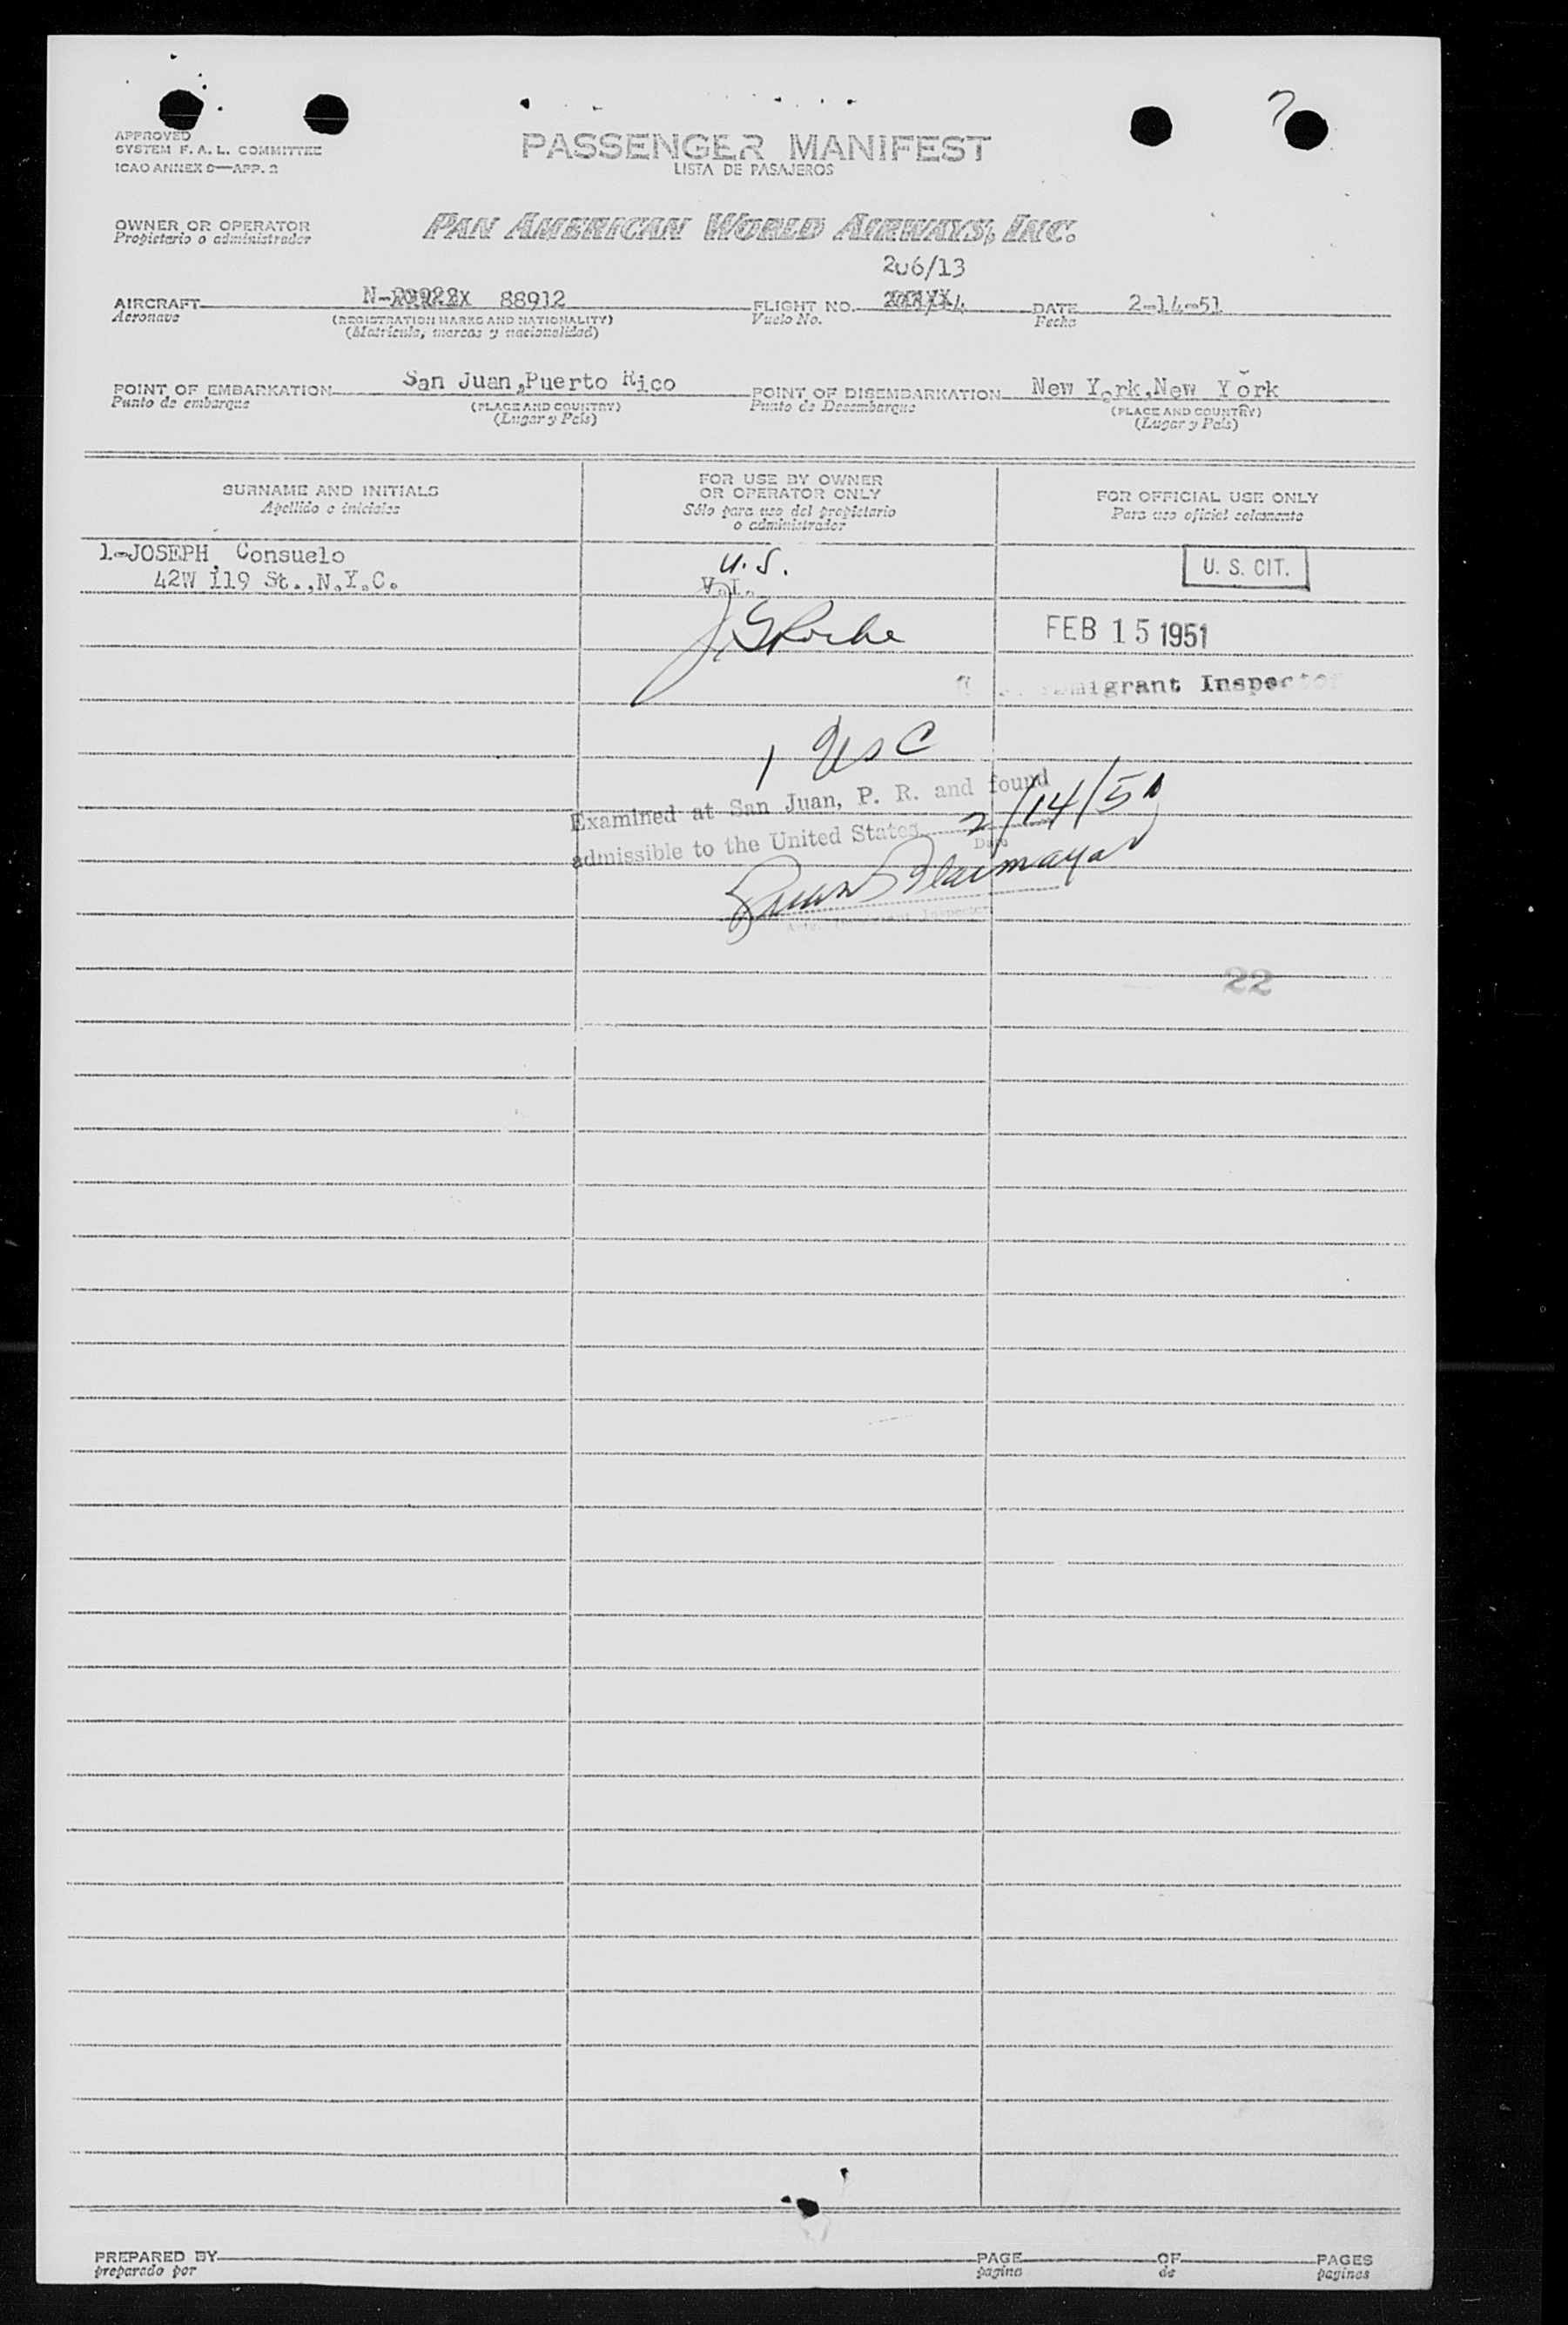 ?
APPROVED
SYSTEM F. A. L. COMMITTEE
ICAO ANNEX 9—APP. 2
PASSENGER MANIFEST
LISTA DE PASAJEROS
OWNER OR OPERATOR
Propietario o administrador
PAN AMERICAN WORLD AIRWAYS, INC.
206/13
AIRCRAFT N- 88912 FLIGHT NO. DATE 2-14-51
Aeronave (REGISTRATION MARKS AND NATIONALITY) Vuelo No. Fecha
(Matrícula, marcas y nacionalidad)
POINT OF EMBARKATION San Juan,Puerto Rico POINT OF DISEMBARKATION New York,New York
Punto de embarque (PLACE AND COUNTRY) Punto de Desembarque (PLACE AND COUNTRY)
(Lugar y País) (Lugar y País)
SURNAME AND INITIALS
Apellido e iniciales
FOR USE BY OWNER
OR OPERATOR ONLY
Sólo para uso del propietario
o administrador
FOR OFFICIAL USE ONLY
Para uso oficial solamente
1-JOSEPH, Consuelo
42W 119 St.,N.Y.C.
U.S.
V.I.
U. S. CIT.
FEB 15 1951
Immigrant Inspector
1 USC
Examined at San Juan, P. R. and found
admissible to the United States 2/14/51
Date
Immigrant Inspector
22
PREPARED BY PAGE OF PAGES
preparado por pagina de paginas